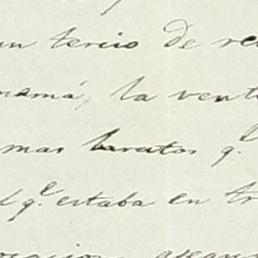 un tercio de re
namá, la vent
mas baratos q.e
l q.e estaba en tr